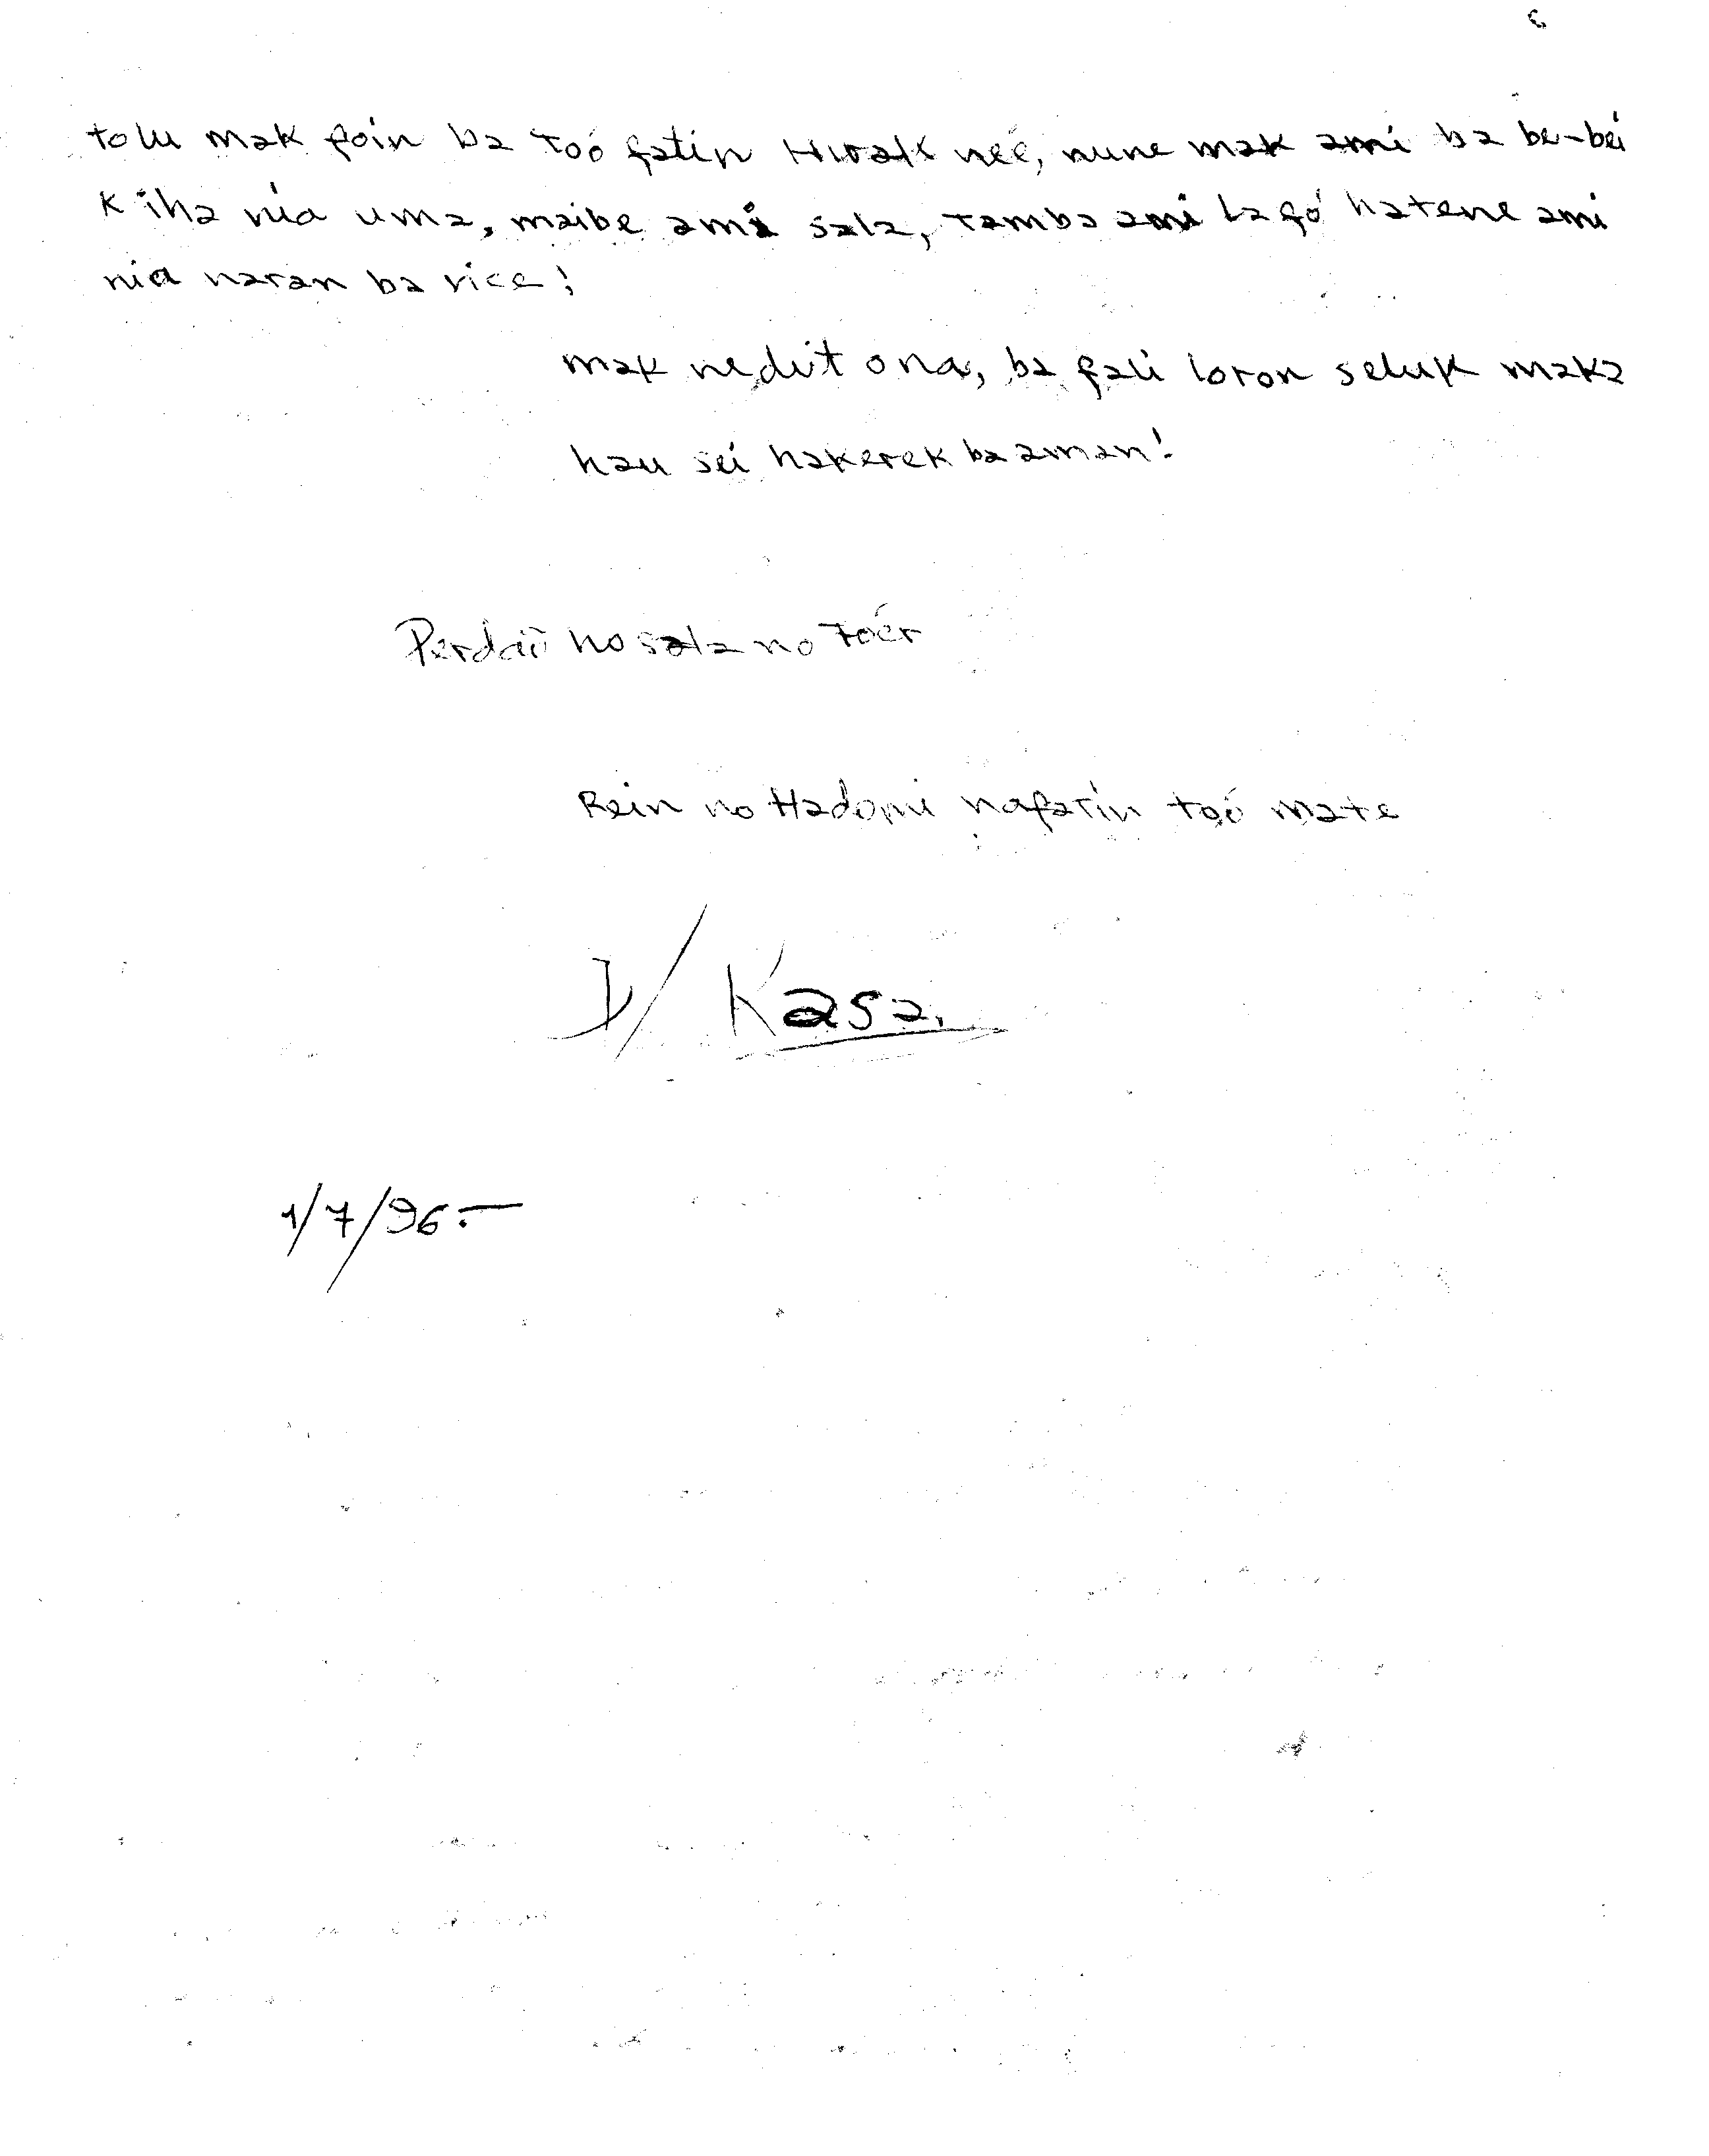 tolu mak foin ba toó fatin Hirak neé, nune mak ami ba bei-bei
k iha nia uma, maibe ami sala, tamba ami la fó hatene ami
nia naran ba vice!
mak nedut ona, ba fali loron seluk maka
hau sei hakerek ba aman!
Perdaõ no sala no toér
Rein no Hadomi nafatin toó mate
Kasa.
1/7/96.-